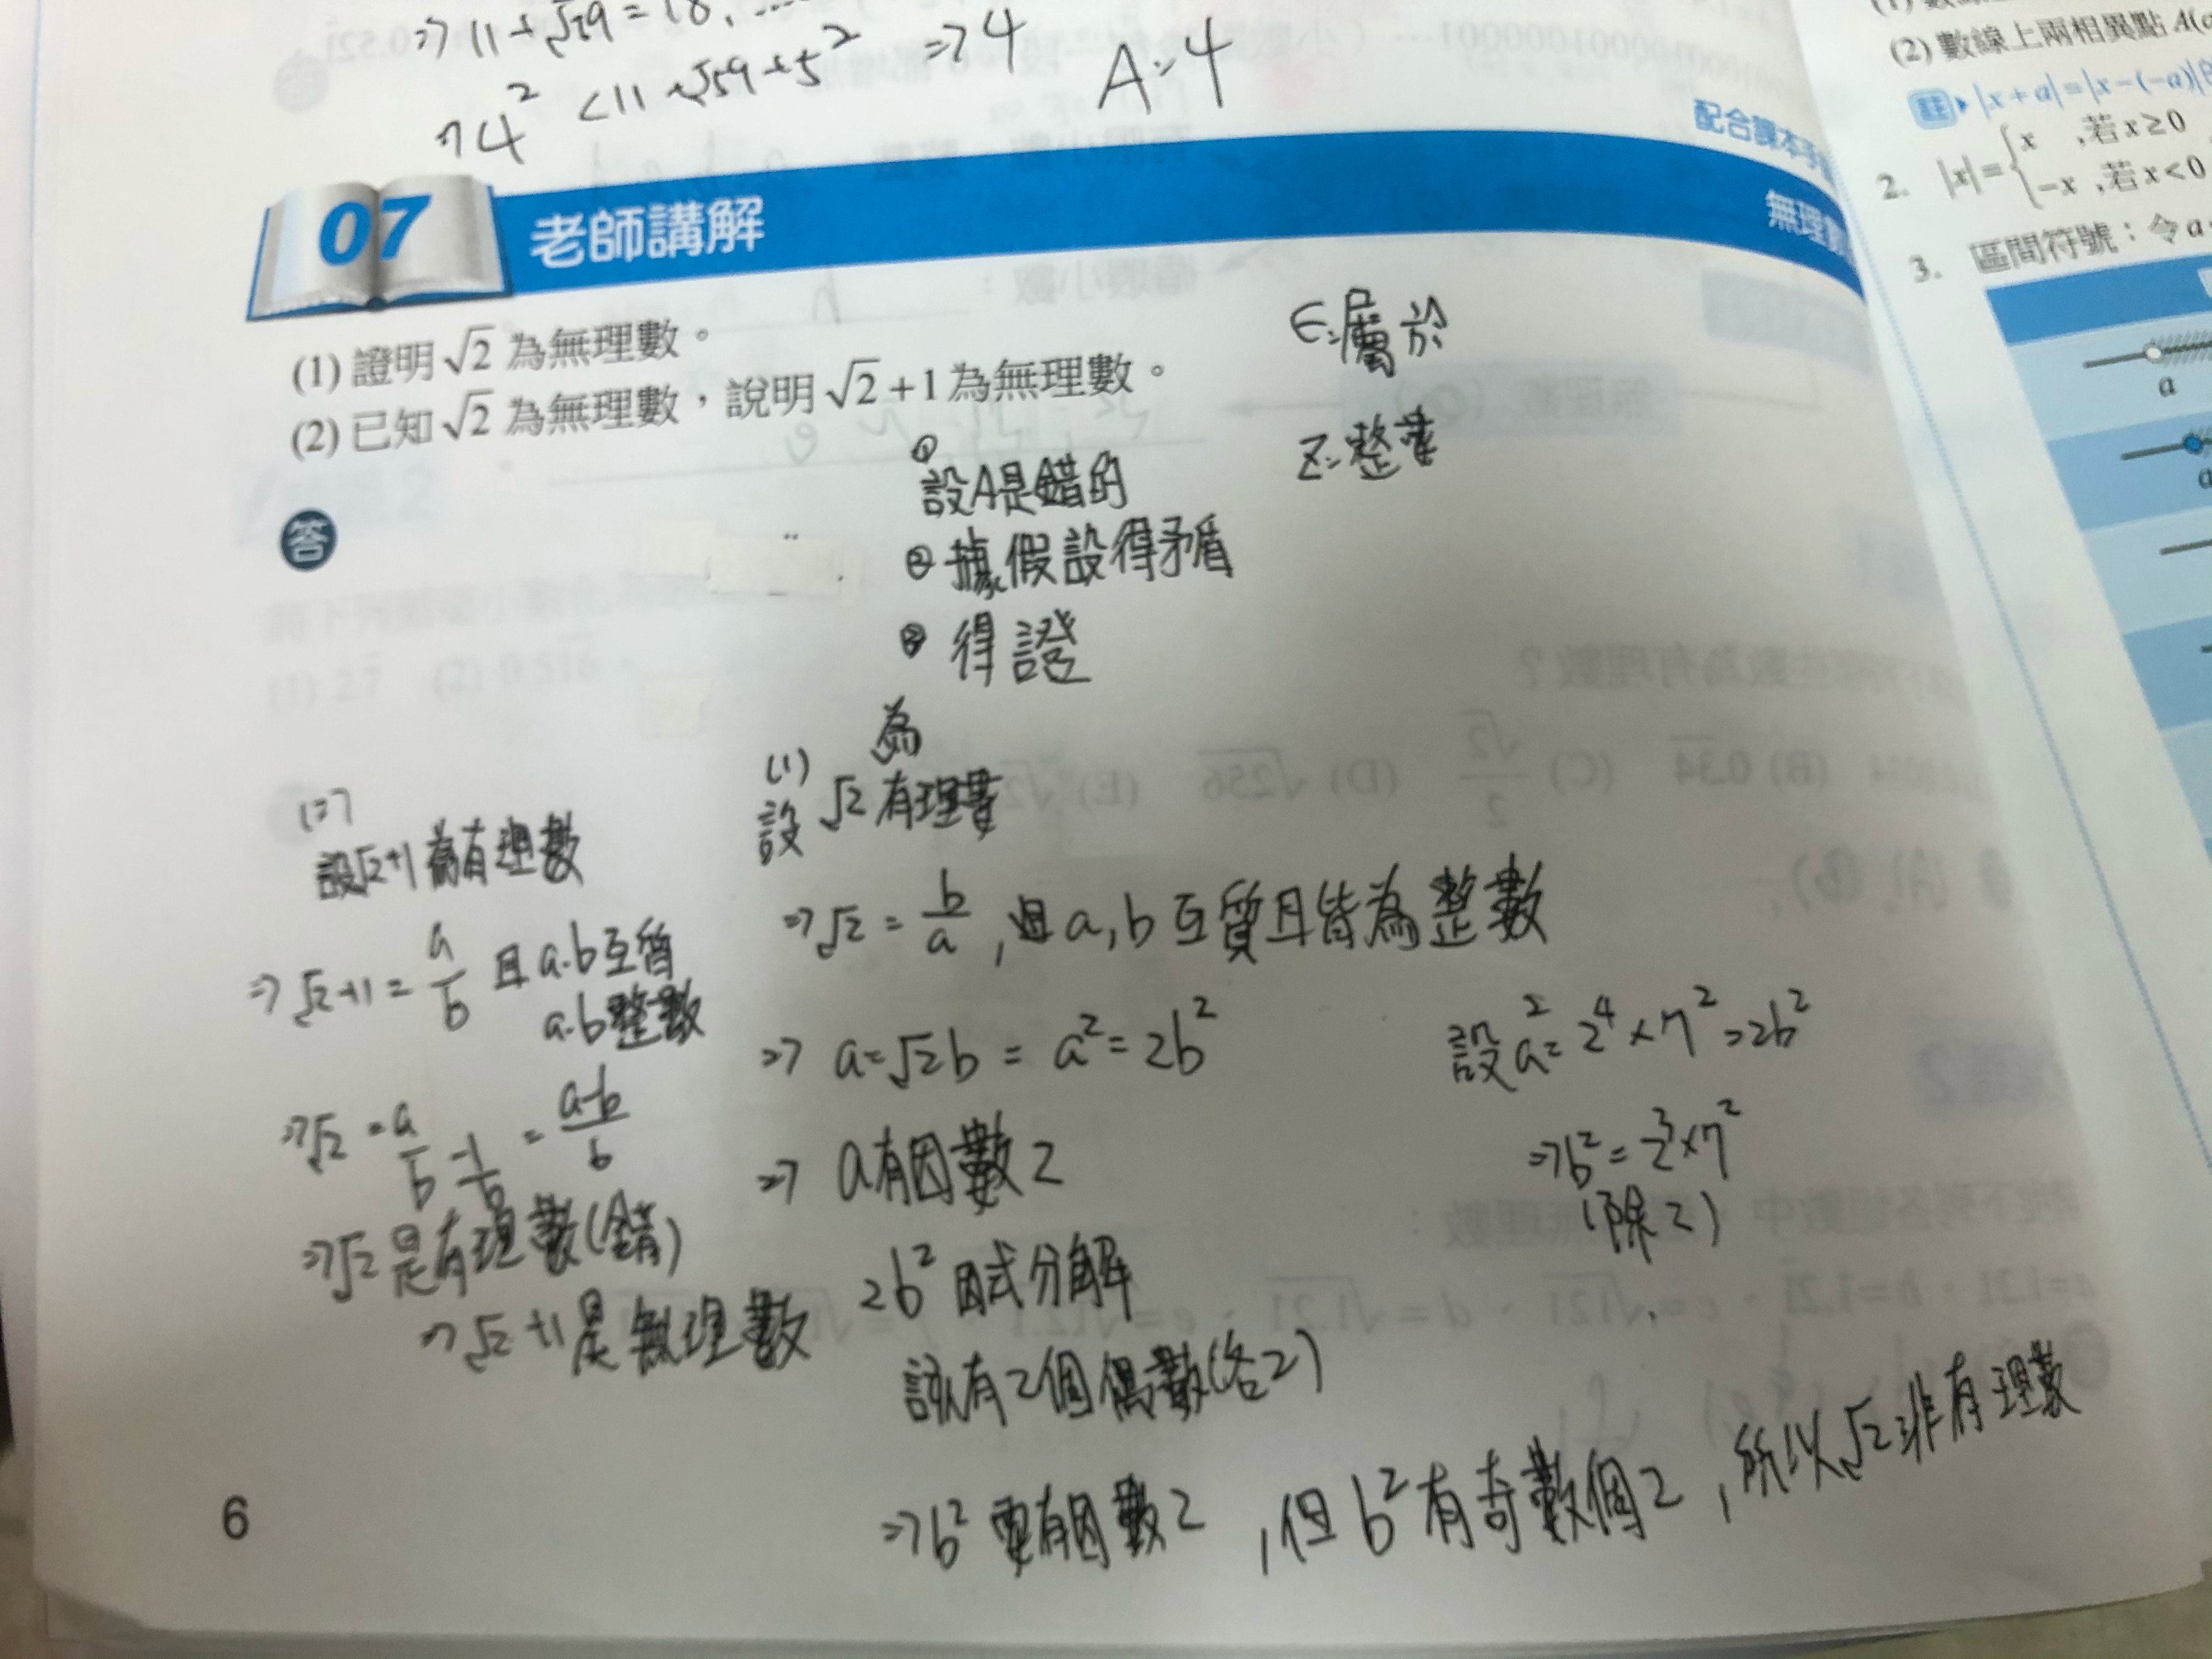 ⇒ 11+√59=18. ...
⇒ 4² <11+√59+5² ⇒ 4
A:4
配合課本
07 老師講解
無理數
(1) 證明√2 為無理數。
(2) 已知√2 為無理數,說明√2+1為無理數。
答
∈:屬於
Z:整數
① 設A是錯的
② 據假設得矛盾
③ 得證
(1)
設 √2 為有理數
⇒√2 = b/a , 且a,b互質且皆為整數
⇒ a=√2b = a²=2b²
⇒ a有因數2
2b² 因式分解
該有2個偶數(各2)
⇒b² 要有因數2 ,但b²有奇數個2,所以√2非有理數
設a²=2⁴×7²=2b²
⇒b²=2³×7²
(除2)
(2)
設√2+1為有理數
⇒ √2+1= a/b 且a.b互質
a.b整數
⇒√2 = a/b - 1/b = a-b/b
⇒√2是有理數(錯)
⇒√2+1是無理數
6
(2) 數線上兩相異點A(
註 |x+a|=|x-(-a)|
2. |x|={x ,若x≥0
-x ,若x<0
3. 區間符號:令a
a
a